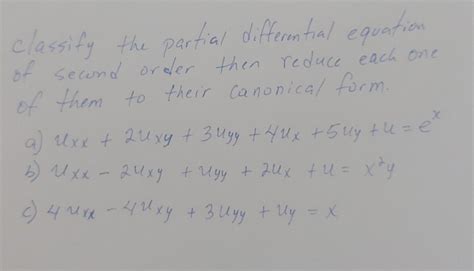 classify the partial differential equation
of second order then reduce each one
of them to their canonical form.
a) uxx + 2uxy + 3uyy + 4ux + 5uy + u = e^x
b) uxx - 2uxy + uyy + 2ux + u = x²y
c) 4uxx - 4uxy + 3uyy + uy = x